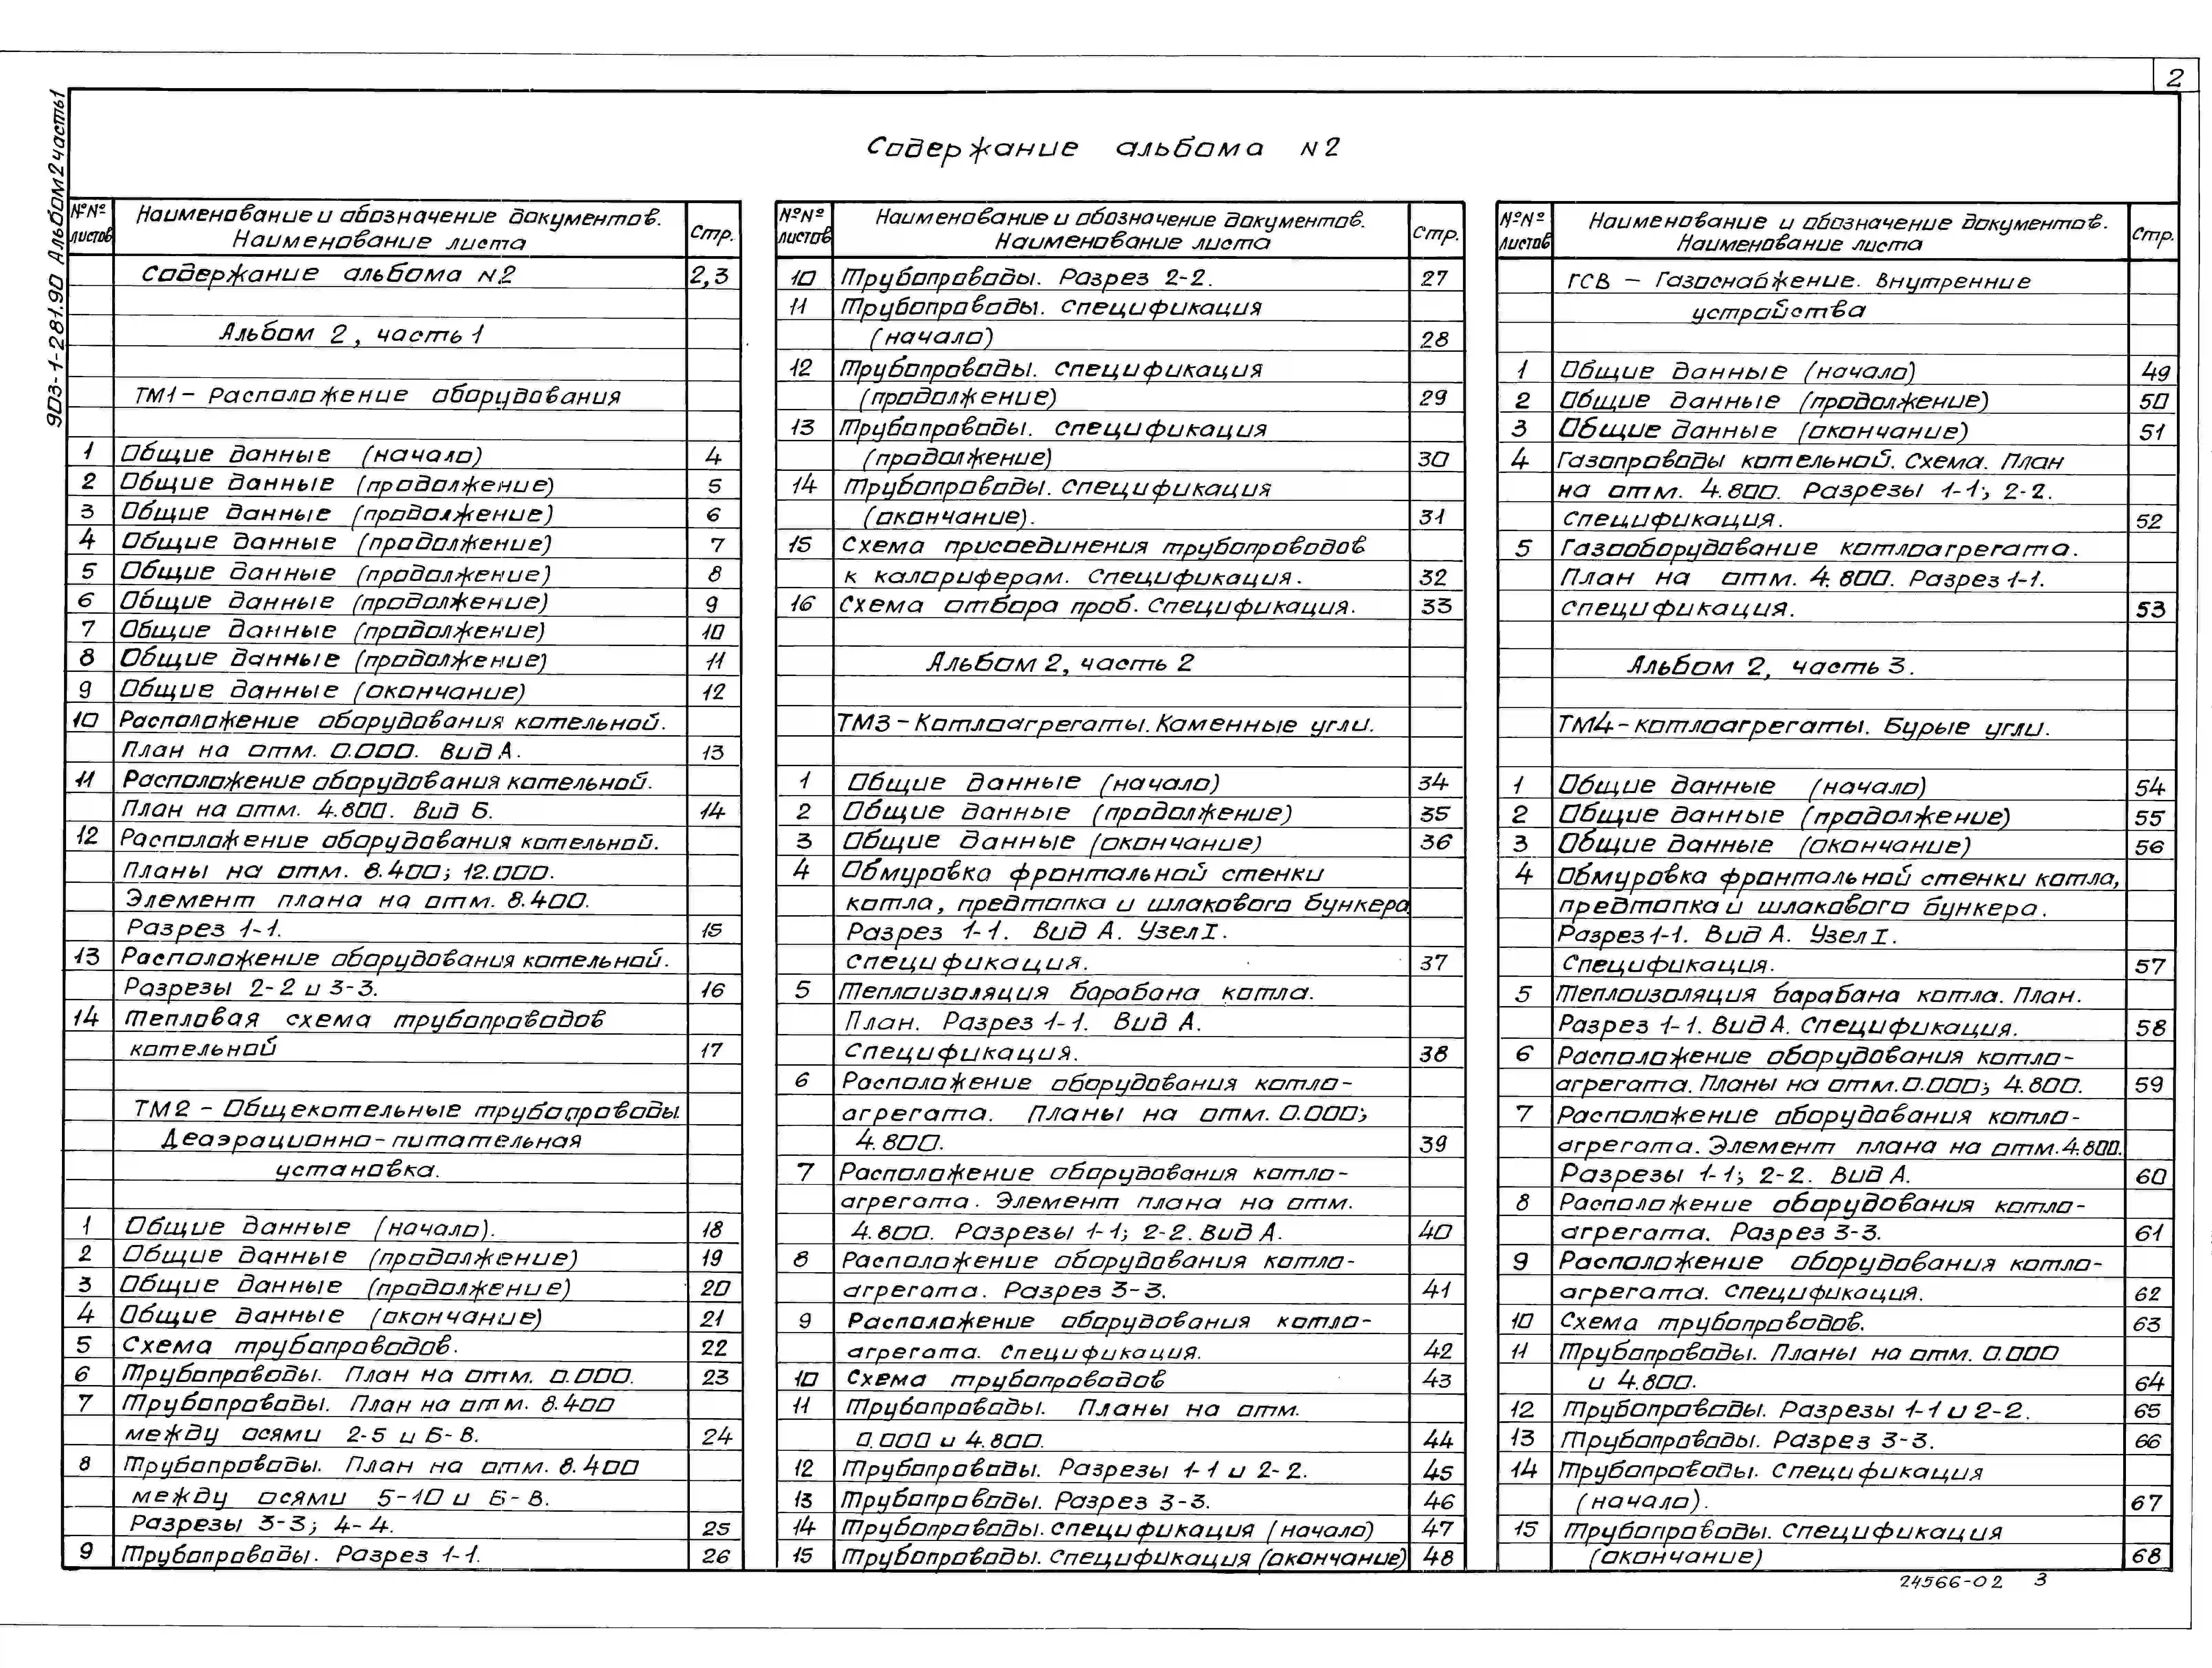 2
903-1-281.90 Альбом 2 часть 1
Содержание альбома N2
№№ листов
Наименование и обозначение документов.
Наименование листа
Стр.
Содержание альбома N2 2,3
Альбом 2, часть 1
ТМ1 - Расположение оборудования
1 Общие данные (начало) 4
2 Общие данные (продолжение) 5
3 Общие данные (продолжение) 6
4 Общие данные (продолжение) 7
5 Общие данные (продолжение) 8
6 Общие данные (продолжение) 9
7 Общие данные (продолжение) 10
8 Общие данные (продолжение) 11
9 Общие данные (окончание) 12
10 Расположение оборудования котельной.
План на отм. 0.000. Вид А. 13
11 Расположение оборудования котельной.
План на отм. 4.800. Вид Б. 14
12 Расположение оборудования котельной.
Планы на отм. 8.400; 12.000.
Элемент плана на отм. 8.400.
Разрез 1-1. 15
13 Расположение оборудования котельной.
Разрезы 2-2 и 3-3. 16
14 Тепловая схема трубопроводов
котельной 17
ТМ2 - Общекотельные трубопроводы.
Деаэрационно-питательная
установка.
1 Общие данные (начало). 18
2 Общие данные (продолжение) 19
3 Общие данные (продолжение) 20
4 Общие данные (окончание) 21
5 Схема трубопроводов. 22
6 Трубопроводы. План на отм. 0.000. 23
7 Трубопроводы. План на отм. 8.400
между осями 2-5 и Б-В. 24
8 Трубопроводы. План на отм. 8.400
между осями 5-10 и Б-В.
Разрезы 3-3; 4-4. 25
9 Трубопроводы. Разрез 1-1. 26
№№ листов
Наименование и обозначение документов.
Наименование листа
Стр.
10 Трубопроводы. Разрез 2-2. 27
11 Трубопроводы. Спецификация
(начало) 28
12 Трубопроводы. Спецификация
(продолжение) 29
13 Трубопроводы. Спецификация
(продолжение) 30
14 Трубопроводы. Спецификация
(окончание). 31
15 Схема присоединения трубопроводов
к калориферам. Спецификация. 32
16 Схема отбора проб. Спецификация. 33
Альбом 2, часть 2
ТМ3 - Котлоагрегаты. Каменные угли.
1 Общие данные (начало) 34
2 Общие данные (продолжение) 35
3 Общие данные (окончание) 36
4 Обмуровка фронтальной стенки
котла, предтопка и шлакового бункера
Разрез 1-1. Вид А. Узел I.
Спецификация. 37
5 Теплоизоляция барабана котла.
План. Разрез 1-1. Вид А.
Спецификация. 38
6 Расположение оборудования котло-
агрегата. Планы на отм. 0.000;
4.800. 39
7 Расположение оборудования котло-
агрегата. Элемент плана на отм.
4.800. Разрезы 1-1; 2-2. Вид А. 40
8 Расположение оборудования котло-
агрегата. Разрез 3-3. 41
9 Расположение оборудования котло-
агрегата. Спецификация. 42
10 Схема трубопроводов 43
11 Трубопроводы. Планы на отм.
0.000 и 4.800. 44
12 Трубопроводы. Разрезы 1-1 и 2-2. 45
13 Трубопроводы. Разрез 3-3. 46
14 Трубопроводы. Спецификация (начало) 47
15 Трубопроводы. Спецификация (окончание) 48
№№ листов
Наименование и обозначение документов.
Наименование листа
Стр.
ГСВ - Газоснабжение. Внутренние
устройства
1 Общие данные (начало) 49
2 Общие данные (продолжение) 50
3 Общие данные (окончание) 51
4 Газопроводы котельной. Схема. План
на отм. 4.800. Разрезы 1-1; 2-2.
Спецификация. 52
5 Газооборудование котлоагрегата.
План на отм. 4.800. Разрез 1-1.
Спецификация. 53
Альбом 2, часть 3.
ТМ4 - Котлоагрегаты. Бурые угли.
1 Общие данные (начало) 54
2 Общие данные (продолжение) 55
3 Общие данные (окончание) 56
4 Обмуровка фронтальной стенки котла,
предтопка и шлакового бункера.
Разрез 1-1. Вид А. Узел I.
Спецификация. 57
5 Теплоизоляция барабана котла. План.
Разрез 1-1. Вид А. Спецификация. 58
6 Расположение оборудования котло-
агрегата. Планы на отм. 0.000; 4.800. 59
7 Расположение оборудования котло-
агрегата. Элемент плана на отм. 4.800.
Разрезы 1-1; 2-2. Вид А. 60
8 Расположение оборудования котло-
агрегата. Разрез 3-3. 61
9 Расположение оборудования котло-
агрегата. Спецификация. 62
10 Схема трубопроводов. 63
11 Трубопроводы. Планы на отм. 0.000
и 4.800. 64
12 Трубопроводы. Разрезы 1-1 и 2-2. 65
13 Трубопроводы. Разрез 3-3. 66
14 Трубопроводы. Спецификация
(начало). 67
15 Трубопроводы. Спецификация
(окончание) 68
24566-02 3